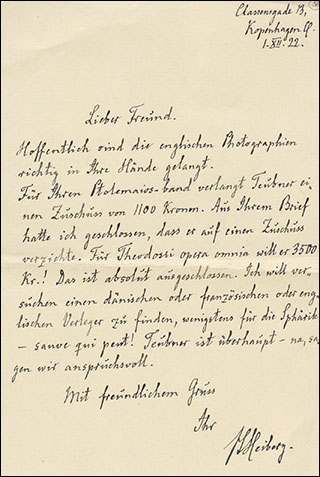 Classensgade 13,
Kopenhagen Ø.
1.XII.22.
Lieber Freund.
Hoffentlich sind die englischen Photographien
richtig in Ihre Hände gelangt.
Für Ihren Ptolemaios-band verlangt Teubner ei-
nen Zuschuss von 1100 Kronen. Aus Ihrem Brief
hatte ich geschlossen, dass er auf einen Zuschuss
verzichte. Für Theodosii opera omnia will er 3500
Kr.! Das ist absolut ausgeschlossen. Ich will ver-
suchen einen dänischen oder französischen oder eng-
lischen Verleger zu finden, wenigstens für die Sphärik
– sauve qui peut! Teubner ist überhaupt – na, sa-
gen wir anspruchsvoll.
Mit freundlichem Gruss
Ihr
Heiberg.